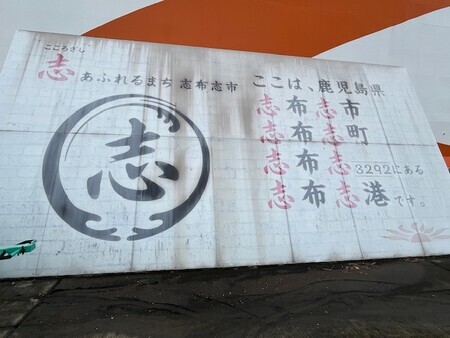 こころざし
志あふれるまち 志布志市
志
ここは、鹿児島県
志布志市
志布志町
志布志3292にある
志布志港です。